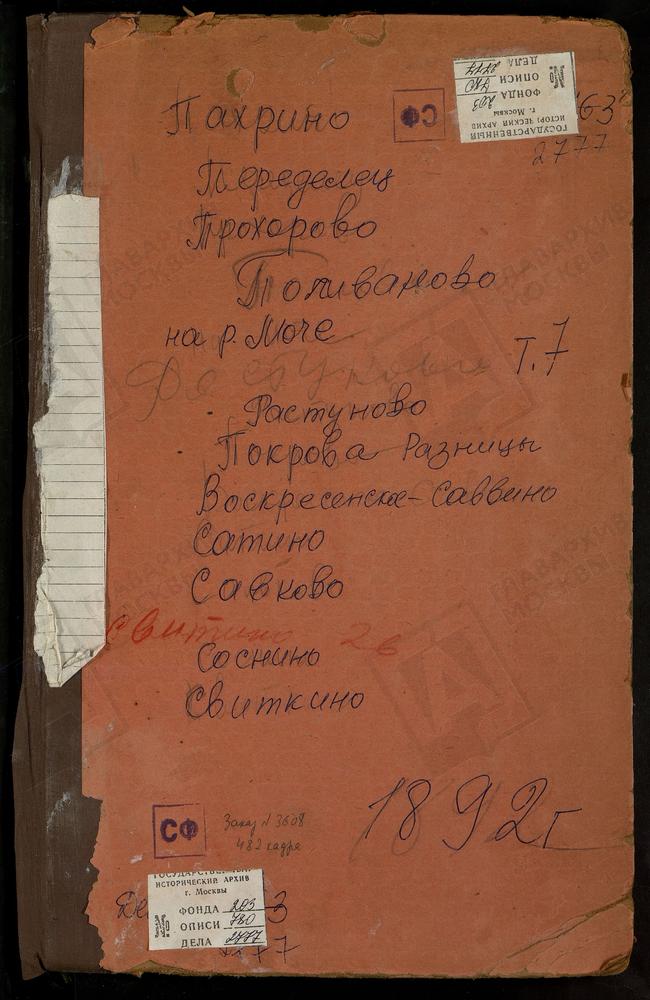 ГОСУДАРСТВЕННЫЙ
ИСТОРИЧЕСКИЙ АРХИВ
г. Москвы
ФОНДА 203
ОПИСИ 780
ДЕЛА 2777
63
2777
СФ
Пахрино
Переделец
Прохорово
Поливаново
на р. Моче
Т. 7
Растуново
Покрова Разницы
Воскресенское-Саввино
Сатино
Савково
Свитино 26
Соснино
Свиткино
1892 г
СФ
Заказ № 3608
482 кадра
ГОСУДАРСТВЕННЫЙ
ИСТОРИЧЕСКИЙ АРХИВ
г. Москвы
ФОНДА 203
ОПИСИ 780
ДЕЛА 2777
ГЛАВАРХИВ
МОСКВЫ